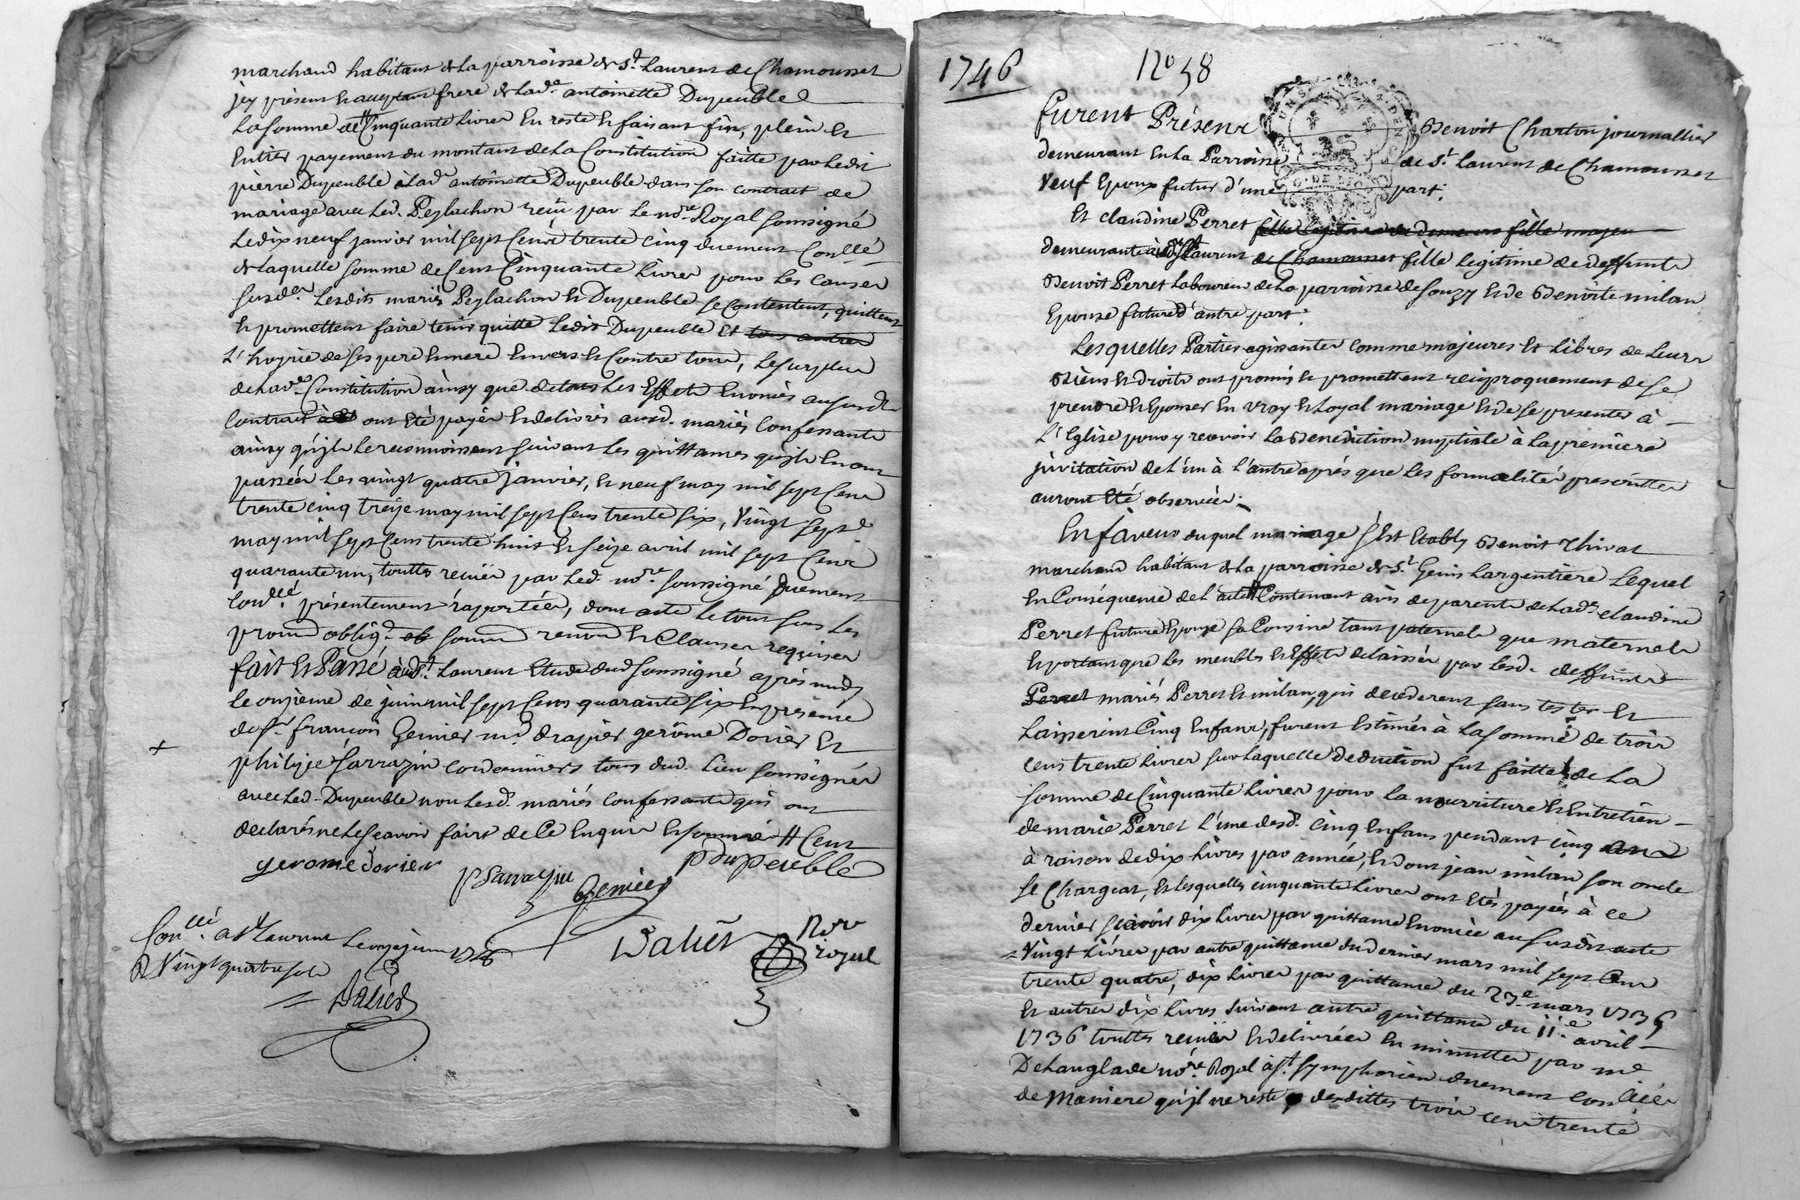 marchand habitant de la parroisse de St. Laurent de Chamousset
jcy présent & acceptant frere de lade. antoinette Dupeuble
la somme de Cinquante livres En reste & faisant fin, plein et
Entier payement du montant de la Constitution faitte par ledit
pierre Dupeuble à lade. antoinette Dupeuble dans son contrat de
mariage avec led. Peylachon reçû par le nore. Royal soussigné
le dix neuf janvier mil sept Cens trente cinq duement Conllé
de laquelle somme de Cent Cinquante livres pour les causes
susdes. lesdits mariés Peylachon & Dupeuble se contentent, quittent
& promettent faire tenir quitte ledit Dupeuble et tous autres
L'hoyrie de ses pere & mere Envers & Contre tous, le surplus
de lade. Constitution ainsy que de tous les Effets Enoncés au susd.
Contrat ont été payés & delivrés ausd. mariés Confessants
ainsy qu'jls le reconnoissent suivant les quittances qu'jls En ont
passées les vingt quatre janvier, & neuf may mil sept Cens
trente cinq treize may mil sept Cens trente six, vingt sept
may mil sept Cens trente huit & seize avril mil sept Cens
quarante un, touttes reçües par led. nore. soussigné Duement
Conllé. présentement rapportées, dont acte le tout sous les
prom. oblig. soum. renon. & Clauses requises
fait & Passé aud. St. Laurent Etude dud. soussigné après midy
le onzieme de juin mil sept Cens quarante six En présence
de sr. françois Genier md. drapier gerôme Dorier et
philipe Sarrazin cordonniers tous dud. lieu soussignés
avec led. Dupeuble non lesd. mariés Confessants qui ont
declarés ne le sçavoir faire de Ce Enquis & sommés # Cent
gerome dorier
P Sarrazin
Genier
P dupeuble
Conllé. a St Laurent le onze juin 1746
R Vingt quatre sols
Daliés
Daliés
Nore
royal
1746
No 58
furent Présens Benoit Charton journallier
demeurant En la Parroisse de St. Laurent de Chamousset
veuf Epoux futur d'une part;
Et claudine Perret
demeurante aud. St Laurent de Chamousset fille legitime de deffunts
Benoit Perret laboureur de la parroisse de Souzy & de Benoite milan
Epouse future d'autre part;
Lesquelles Parties agissantes comme majeures & Libres de leurs
Biens & droits ont promis & promettent reciproquement de se
prendre & Epouser En vray & loyal mariage & de se presenter à
L'Eglise pour y recevoir la Benediction nuptiale à la premiere
jnvitation de l'un à l'autre aprés que les formalités prescrittes
auront Eté observées.
En faveur duquel mariage s'est Etably Benoit Thivat
marchand habitant de la parroisse de St. Genis Largentiere Lequel
En Conséquence de l'acte Contenant avis de parents de lade. claudine
Perret future Epouse sa Cousine tant paternele que maternele
& portant que les meubles & Effets delaissés par lesd. deffunts
Perret mariés Perret & milan, qui decederent sans tester &
Laisserent Cinq Enfans, furent Estimés à la somme de trois
cens trente livres sur laquelle deduction fut faitte de la
somme de Cinquante livres pour la nourriture & Entretien
de marie Perret l'une desd. Cinq Enfans pendant cinq ans
à raison de dix livres par année, & dont jean milan son oncle
se Chargeat, & lesquelles cinquante livres ont Etés payées à ce
dernier sçavoir dix livres par quittance Enoncée au susdit acte
Vingt livres par autre quittance du dernier mars mil sept Cens
trente quatre, dix livres par quittance du 27e. mars 1735
Et autres dix livres suivant autre quittance du 11e. avril
1736 touttes reçües & delivrées En minuttes par me.
Delanglade nore. Royal à St. Symphorien duement conllées
de maniere qu'jl ne reste desdittes trois cens trente